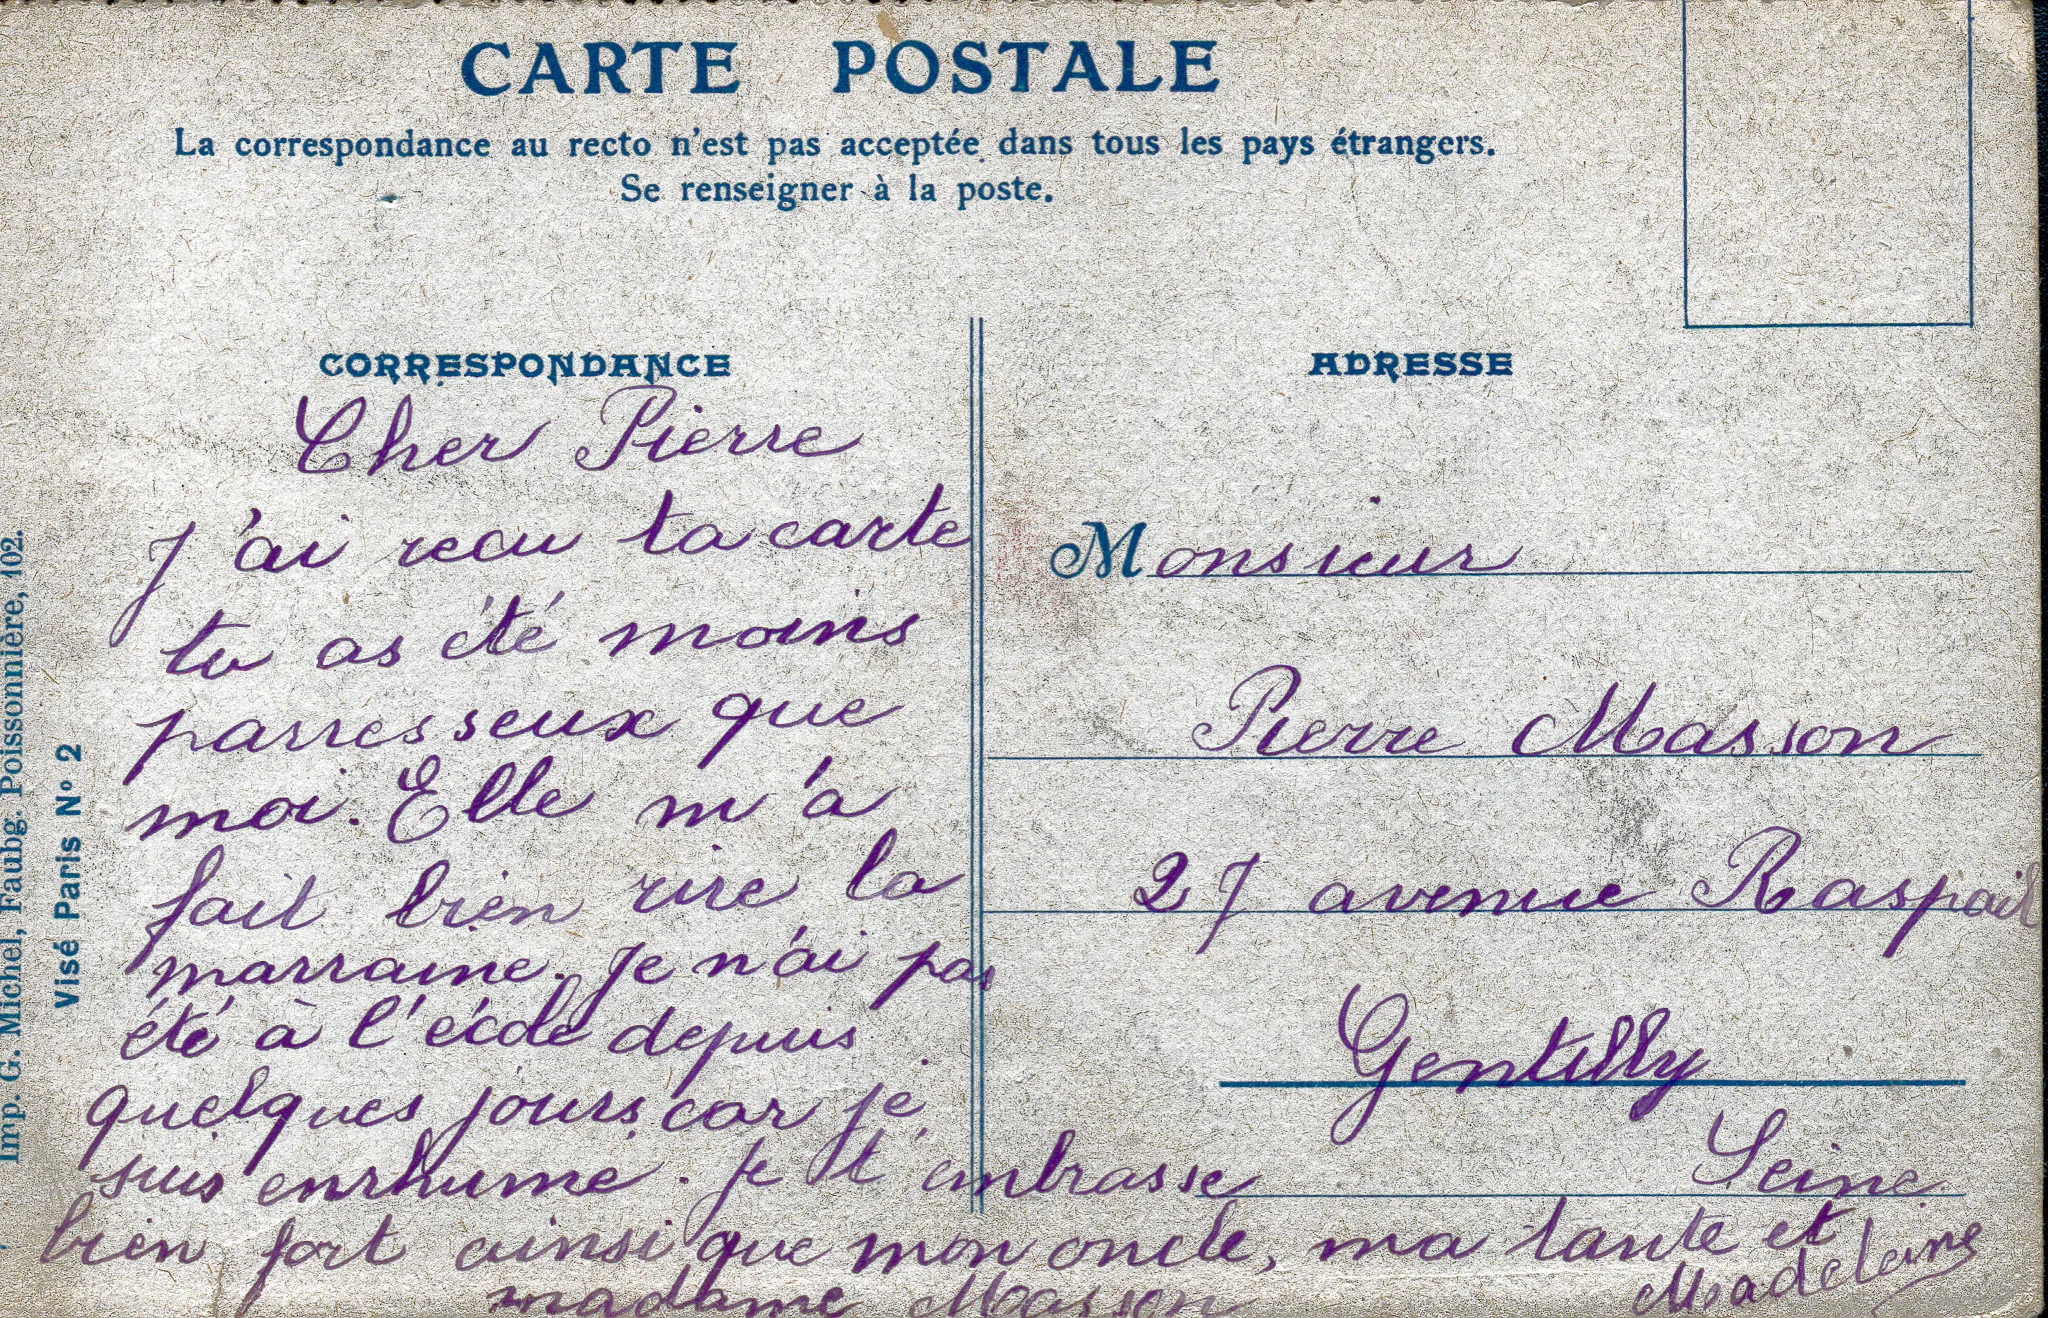 CARTE POSTALE
La correspondance au recto n'est pas acceptée dans tous les pays étrangers.
Se renseigner à la poste.
CORRESPONDANCE
Cher Pierre
J'ai recu ta carte
tu as été moins
parresseux que
moi. Elle m'a
fait bien rire la
marraine. Je n'ai pas
été à l'école depuis
quelques jours car je
suis enrhume. Je t'embrasse
bien fort ainsi que mon oncle, ma tante et
madame Masson
Madeleine
ADRESSE
Monsieur
Pierre Masson
27 avenue Raspail
Gentilly
Seine
Imp. G. Michel, Faubg. Poissonnière, 102.
Visé Paris N° 2